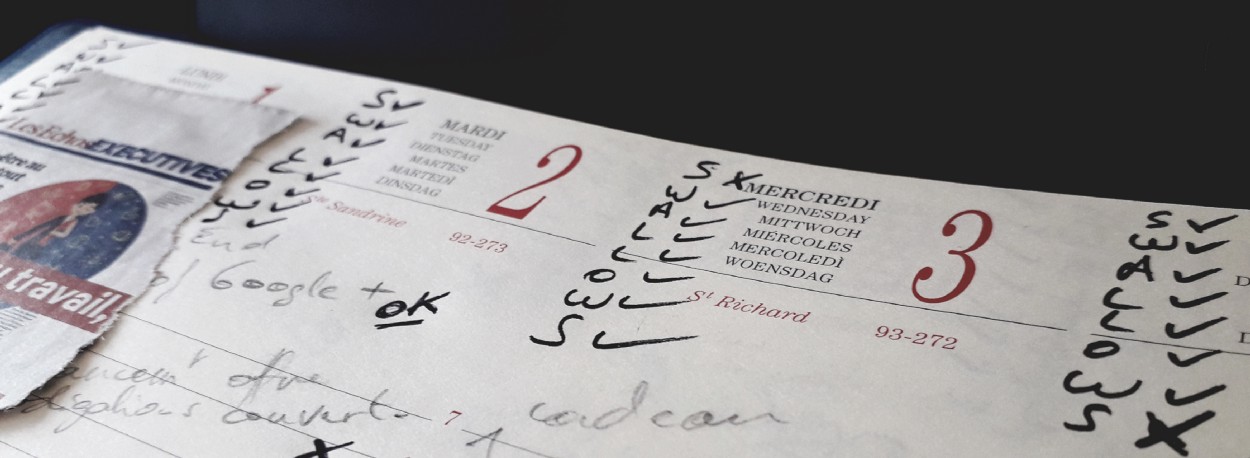 S ✓
LUNDI
1
LesEchos EXECUTIVES
travail,
S ✓
W ✓
A ✓
L ✓
L ✓
O ✓
W ✓
S ✓
MARDI
TUESDAY
DIENSTAG
MARTES
MARTEDÌ
DINSDAG
2
Ste Sandrine
92-273
End
Google + OK
offre
couvert
7
cadeau
S X
W ✓
A ✓
L ✓
L ✓
O ✓
W ✓
S ✓
MERCREDI
WEDNESDAY
MITTWOCH
MIÉRCOLES
MERCOLEDÌ
WOENSDAG
3
St Richard
93-272
S ✓
W ✓
A ✓
L ✓
L ✓
O ✓
W ✓
S X
D
D